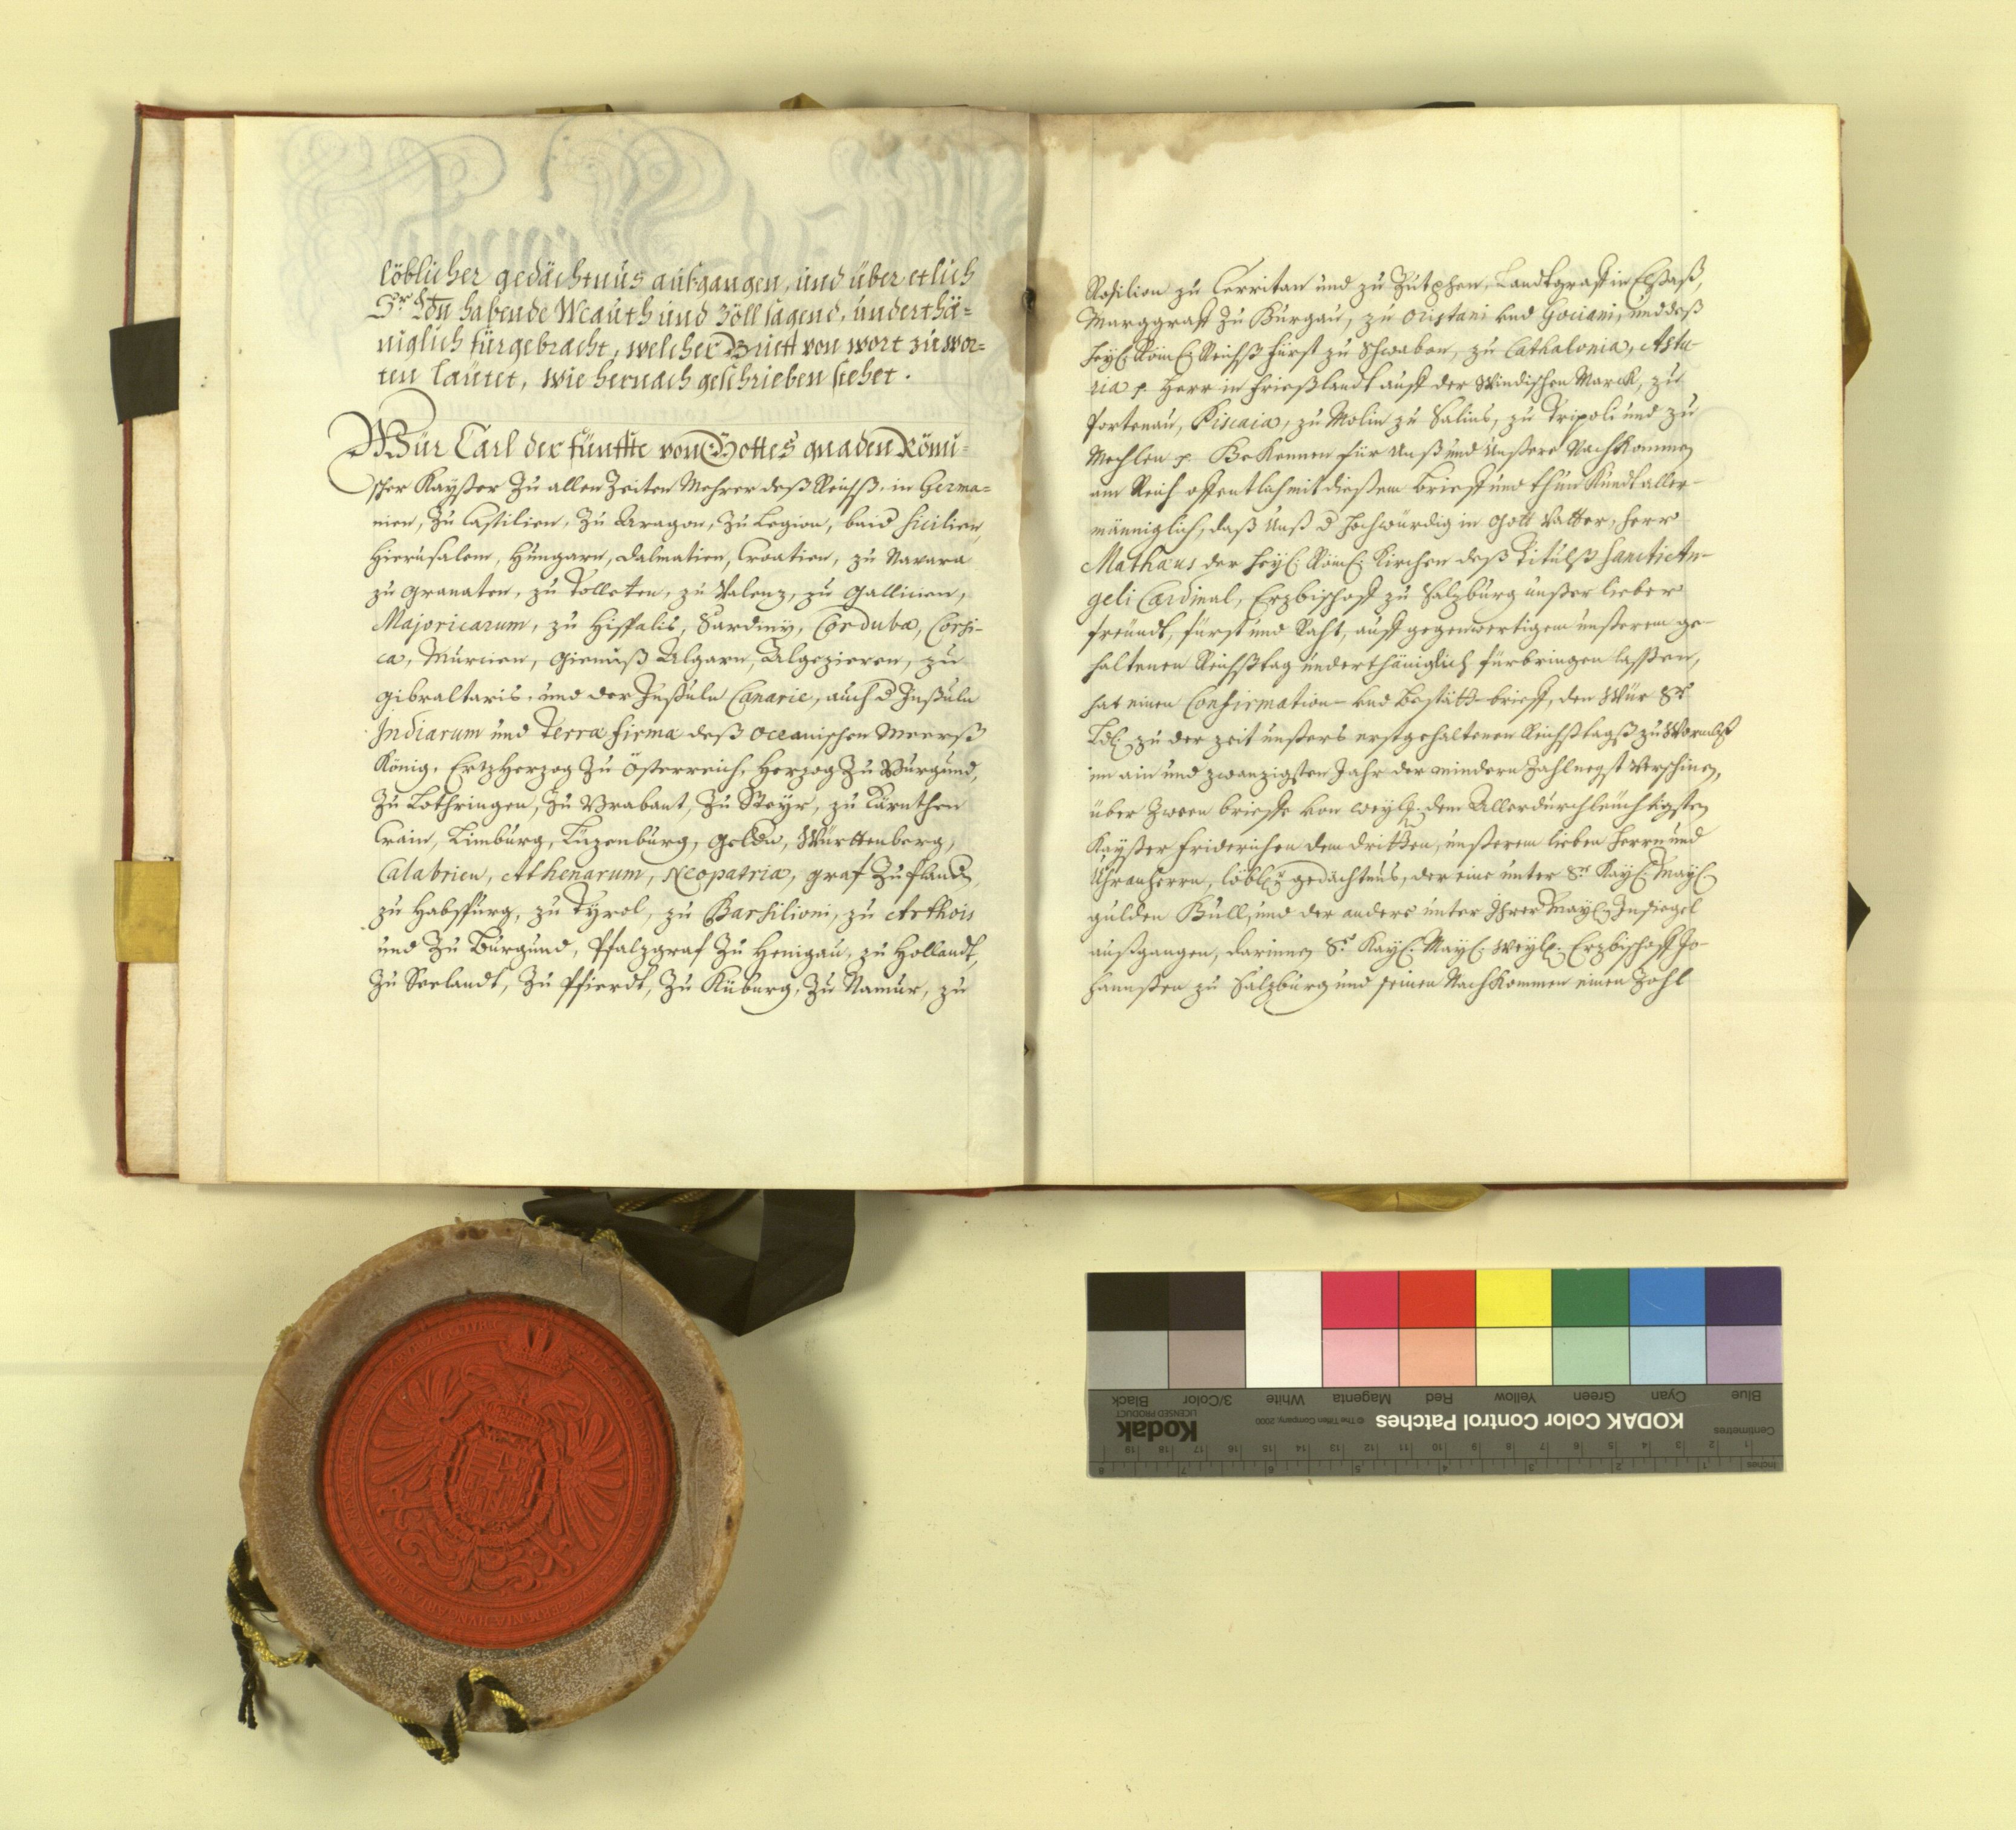 löblicher gedächtnüs außgangen, und über etlich
Sr. Ldn habende Meauth und Zöll sagend, underthä-
niglich fürgebracht, welcher Brieff von wort zu wor-
ten lautet, wie hernach geschrieben stehet.
Wür Carl der fünffte von Gottes gnaden Römi-
scher Kayßer Zu allen Zeiten Mehrer deß Reichß, in Germa-
nien, Zu Castilien, Zu Aragon, Zu Legion, baid Sicilien,
Hierusalem, Hungarn, Dalmatien, Croatien, zu Navara
zu Granaten, zu Tolleten, zu Valenz, zu Gallicien,
Majoricarum, zu Hispalis, Sardiny, Corduba, Corsi-
ca, Murcien, Gienuß Algarn, Algezieren, zu
Gibraltaris, und der Inßuln Canarie, auch d Inßuln
Indiarum und Terra firma deß Oceanischen Meerß
König, ErtzHerzog Zu Österreich, Herzog Zu Burgund,
Zu Lothringen, Zu Brabant, Zu Steyr, zu Kärnthen
Crain, Limburg, Lüzenburg, Geldn, Württenberg,
Calabrien, Athenarum, Neopatria, graf Zu Fland
zu Habspurg, zu Tyrol, zu Barsilioni, zu Arthois
und Zu Burgund, Pfalzgraf Zu Henigau, zu Hollandt,
Zu Seelandt, Zu Pfierdt, Zu Küburg, Zu Namur, zu
Rosilion zu Cerritan und zu Zütphen, Landtgraff in Elßaß,
Marggraff Zu Burgau, zu Oristani und Gociani, und deß
Heyl. Röm. Reichß fürst zu Schwaben, zu Cathalonia, Astu-
ria p. Herr in Frießlandt auff der Windischen Marck, zu
Portenau, Biscaia, zu Molin zu Salins, zu Tripoli und zu
Mechlen p. BeKennen für Unß und Unßere NachKommen
am Reich offentlich mit dießem Brieff und thun Kundt aller-
männiglich, daß Unß d Hochwürdig in Gott Vatter, Herr
Mathæus der Heyl. Röm. Kirchen deß Titulß Sancti An-
geli Cardinal, Erzbischoff zu Salzburg unßer lieber
freundt, fürst und Raht, auff gegenwertigem unßerem ge-
haltenen Reichßtag underthäniglich fürbringen lassen,
hat einen Confirmation- und Bestätt-brieff, den Wür Sr
Ld. zu der zeit unßers erstgehaltenen Reichßtagß zu Wormbß
im ain und zwanzigsten Jahr der mindern Zahl negst Verschinen,
über Zween brieffe von weyl. dem Allerdurchleuchtigsten
Kayßer Friderichen dem dritten, unßerem lieben Herrn und
Uhranherrn, löbl. gedächtnus, der eine unter Sr Kay. May.
gulden Bull, und der andere unter Ihrer May. Insiegel
außgangen, darinnen Sr Kay. May. weyl. Erzbischoff Jo-
hannßen zu Salzburg und seinen NachKommen einen Zohl
Blue Cyan Green Yellow Red Magenta White 3/Color Black
KODAK Color Control Patches
© The Tiffen Company, 2000
Kodak
LICENSED PRODUCT
Centimetres
1 2 3 4 5 6 7 8 9 10 11 12 13 14 15 16 17 18 19
Inches
1 2 3 4 5 6 7 8